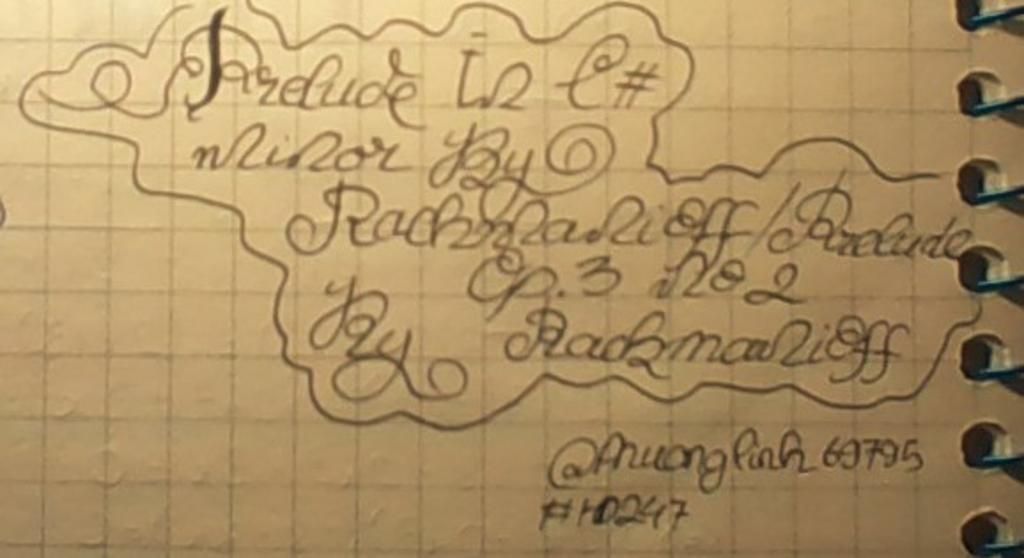 Prelude in C#
minor By
Rachmanioff/Prelude
Op.3 No 2
By Rachmanioff
@thuonglinh69795
#HD247